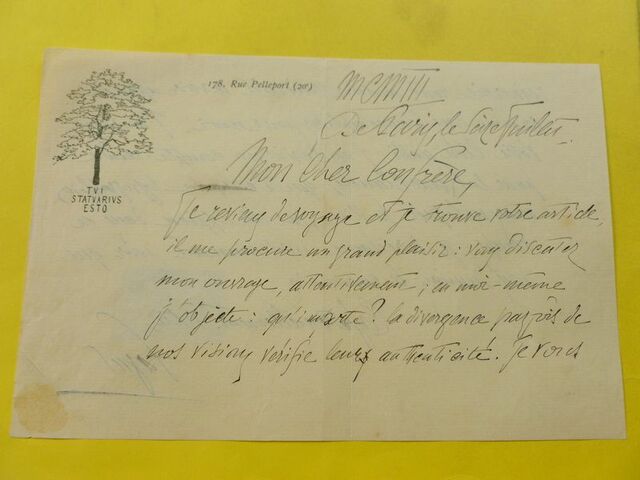 178. Rue Pelleport (20e)
MCMIII
De Paris, le Seize Juillet.
TVI
STATVARIVS
ESTO
Mon Cher Confrère,
Je reviens de voyage et je trouve votre article,
il me procure un grand plaisir : vous discutez
mon ouvrage, attentivement ; en moi-même
j'objecte : qu'importe ? la divergence parfois de
nos visions vérifie leur authenticité. Je vous